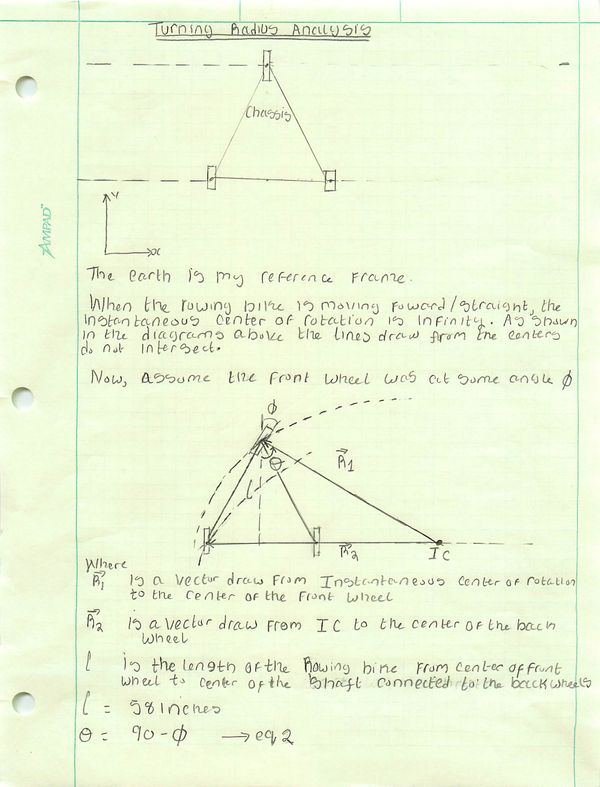 Turning Radius Analysis
Chassis
Y
x
AMPAD
The earth is my reference Frame.
When the rowing bike is moving Foward/straight, the
instantaneous center of rotation is infinity. As shown
in the diagrams above the lines draw from the centers
do not intersect.
Now, Assume the Front wheel was at some angle ϕ
ϕ
θ
R⃗1
l
R⃗2
IC
Where
R⃗1 is a vector draw From Instantaneous center of rotation
to the center of the Front wheel
R⃗2 is a vector draw From IC to the center of the back
wheel
l is the length of the Rowing bike From center of Front
wheel to center of the shaft connected to the back wheels
l = 58 inches
θ = 90-ϕ → eq 2